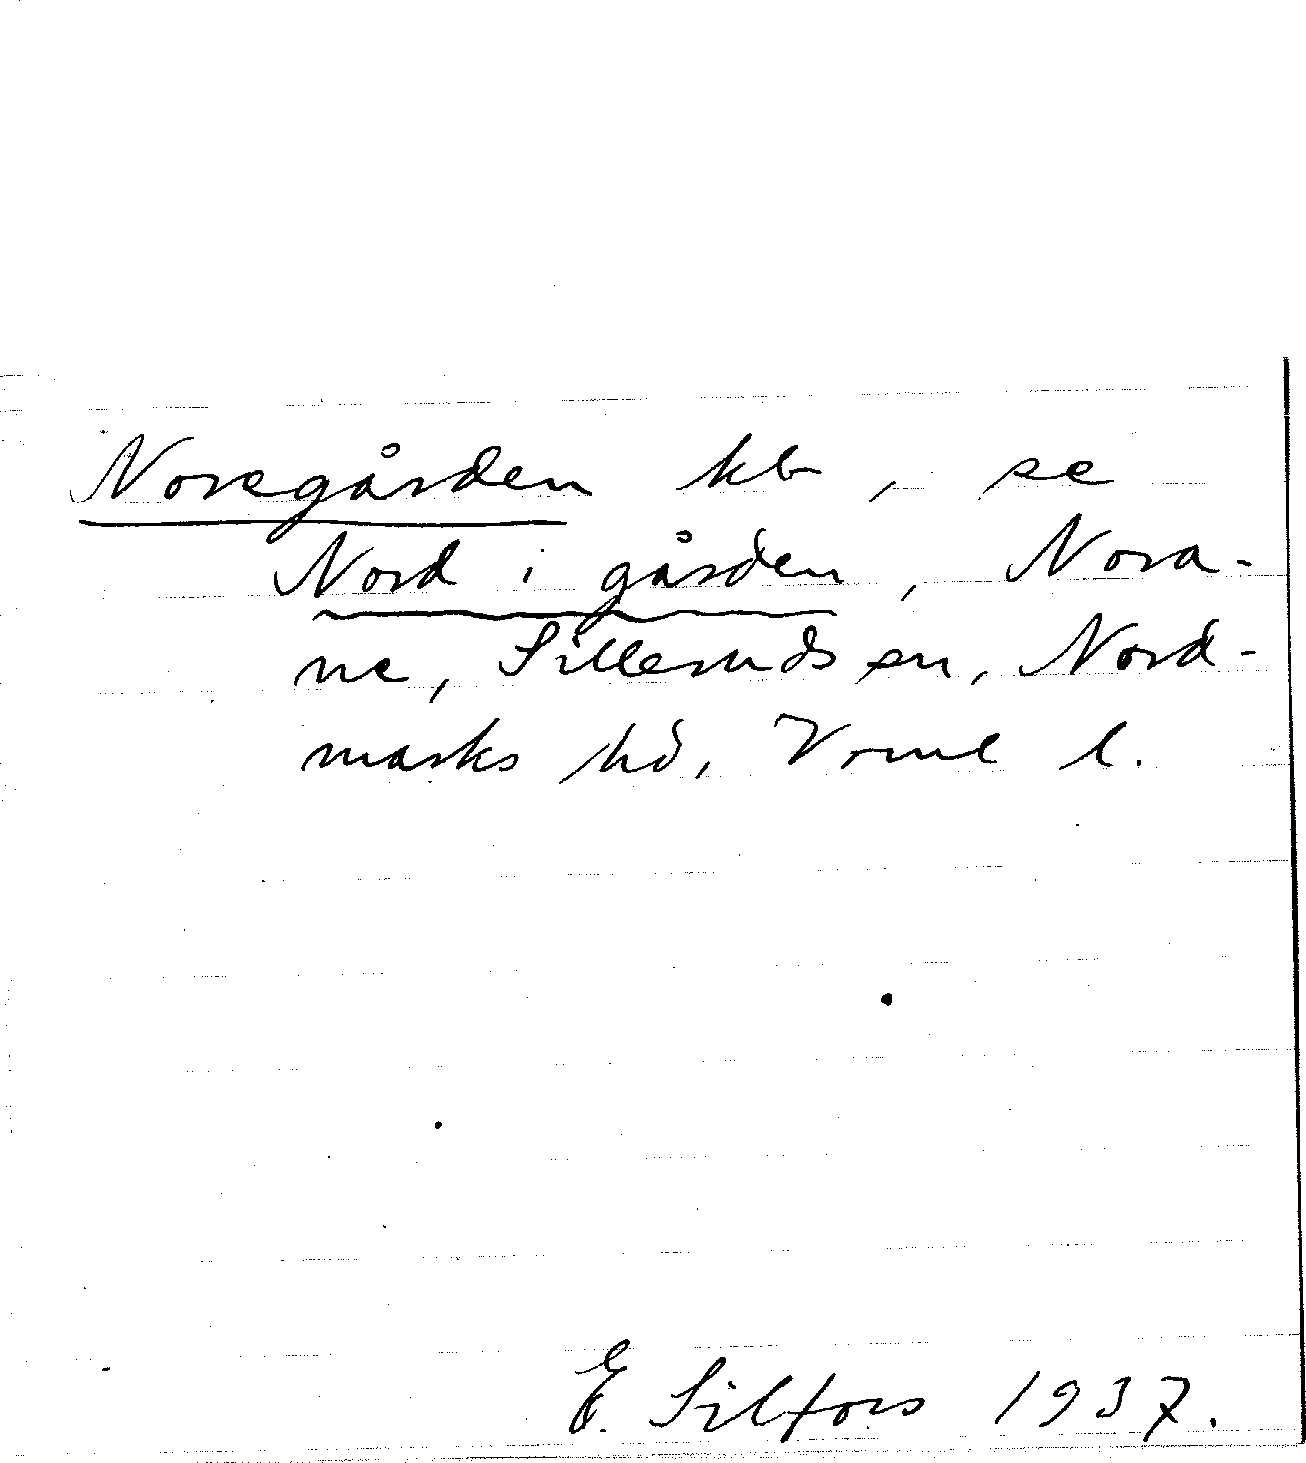 Noregården kb, se
Nord i gården, Nora-
ne, Silleruds sn, Nord-
marks hd, Vrml l.
E. Silfors 1937.